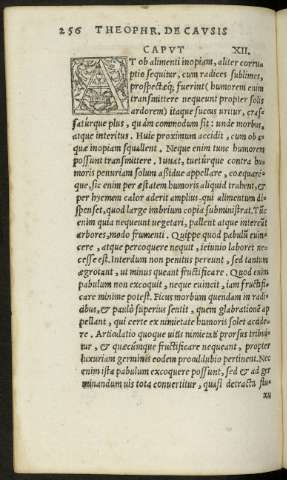 256 THEOPHR. DE CAVSIS
CAPVT XII.
AT ob alimenti inopiam, aliter corru
ptio sequitur, cum radices sublimes,
prospectæq́; fuerint (humorem eium
transmittere nequeunt propter solis
ardorem) itaque succus uritur, cras
saturque plus, quàm commodum sit: unde morbus,
atque interitus. Huic proximum accidit, cum ob a-
quæ inopiam squallent. Neque enim tunc humorem
possunt transmittere. Iuuat, tueturque contra hu
moris penuriam solum aßidue appellare, coæquari-
que, sic enim per æstatem humoris aliquid trahent, &
per hyemem calor aderit amplius qui alimentum di-
spenset, quod large imbrium copia subministrat. Tũc
enim quia nequeunt uegetari, pallent atque intereũt
arbores, modo frumenti. Quippe quod pabulũ euin-
cere, atque percoquere nequit, ieiunio laboret ne-
cesse est. Interdum non penitus pereunt, sed tantum
ægrotant, ut minus queant fructificare. Quod enim
pabulum non excoquit, neque euincit, iam fructifi-
care minime potest. Ficus morbum quendam in radi
cibus, & paulò superius sentit, quem glabrationem ap
pellant, qui certe ex nimietate humoris solet accide-
re. Articulatio quoque uitis nimietatis prorsus tribui
tur, & quæcunque fructificare nequeant, propter
luxuriam germinis eodem procul dubio pertinent. Nec
enim ista pabulum excoquere possunt, sed & ad ger
minandum uis tota conuertitur, quasi detracta flu-
xu